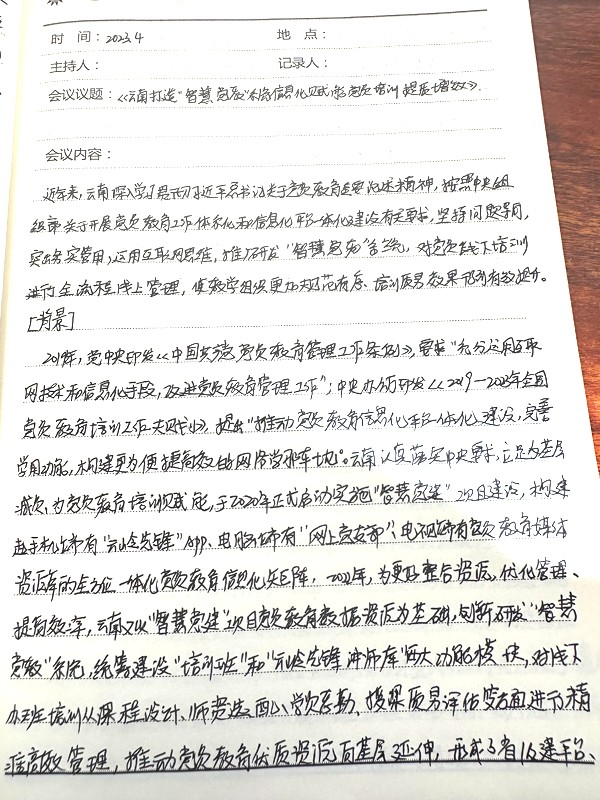 时 间：2023.4 地 点：
主持人： 记录人：
会议议题：《云南打造"智慧党教"系统信息化赋能党员培训提质增效》.
会议内容：
近年来，云南深入学习贯彻习近平总书记关于党员教育重要论述精神，按照中央组
组部关于开展党员教育工作体系化和信息化平台一体化建设有关要求，坚持问题导向，
突出务实管用，运用互联网思维，推广研发"智慧党教"系统，对党员线下培训
进行全流程线上管理，使教学组织更加规范有序、培训质量效果得到有效提升。
[背景]
2019年，党中央印发《中国共产党党员教育管理工作条例》，要求"充分运用互联
网技术和信息化手段，改进党员教育管理工作"；中央办公厅印发《2019—2023年全国
党员教育培训工作规划》，提出"推动党员教育信息化平台一体化建设，完善
学用功能，构建更为便捷高效的网络学习阵地"。云南认真落实中央要求，立足为基层
减负、为党员教育培训赋能，于2020年正式启动实施"智慧党建"项目建设，构建
起手机端有"云岭先锋"APP、电脑端有"网上党支部"、电视端有党员教育媒体
资源库的全方位一体化党员教育信息化矩阵，2022年，为更好整合资源，优化管理、
提高效率，云南又以"智慧党建"项目党员教育数据资源为基础，创新研发"智慧
党教"系统，统筹建设"培训班"和"云岭先锋讲师库"两大功能模块，对线下
办班培训从课程设计、师资选配、学员考勤、授课质量评估等方面进行精
准高效管理，推动党员教育优质资源向基层延伸，形成了省级建平台、